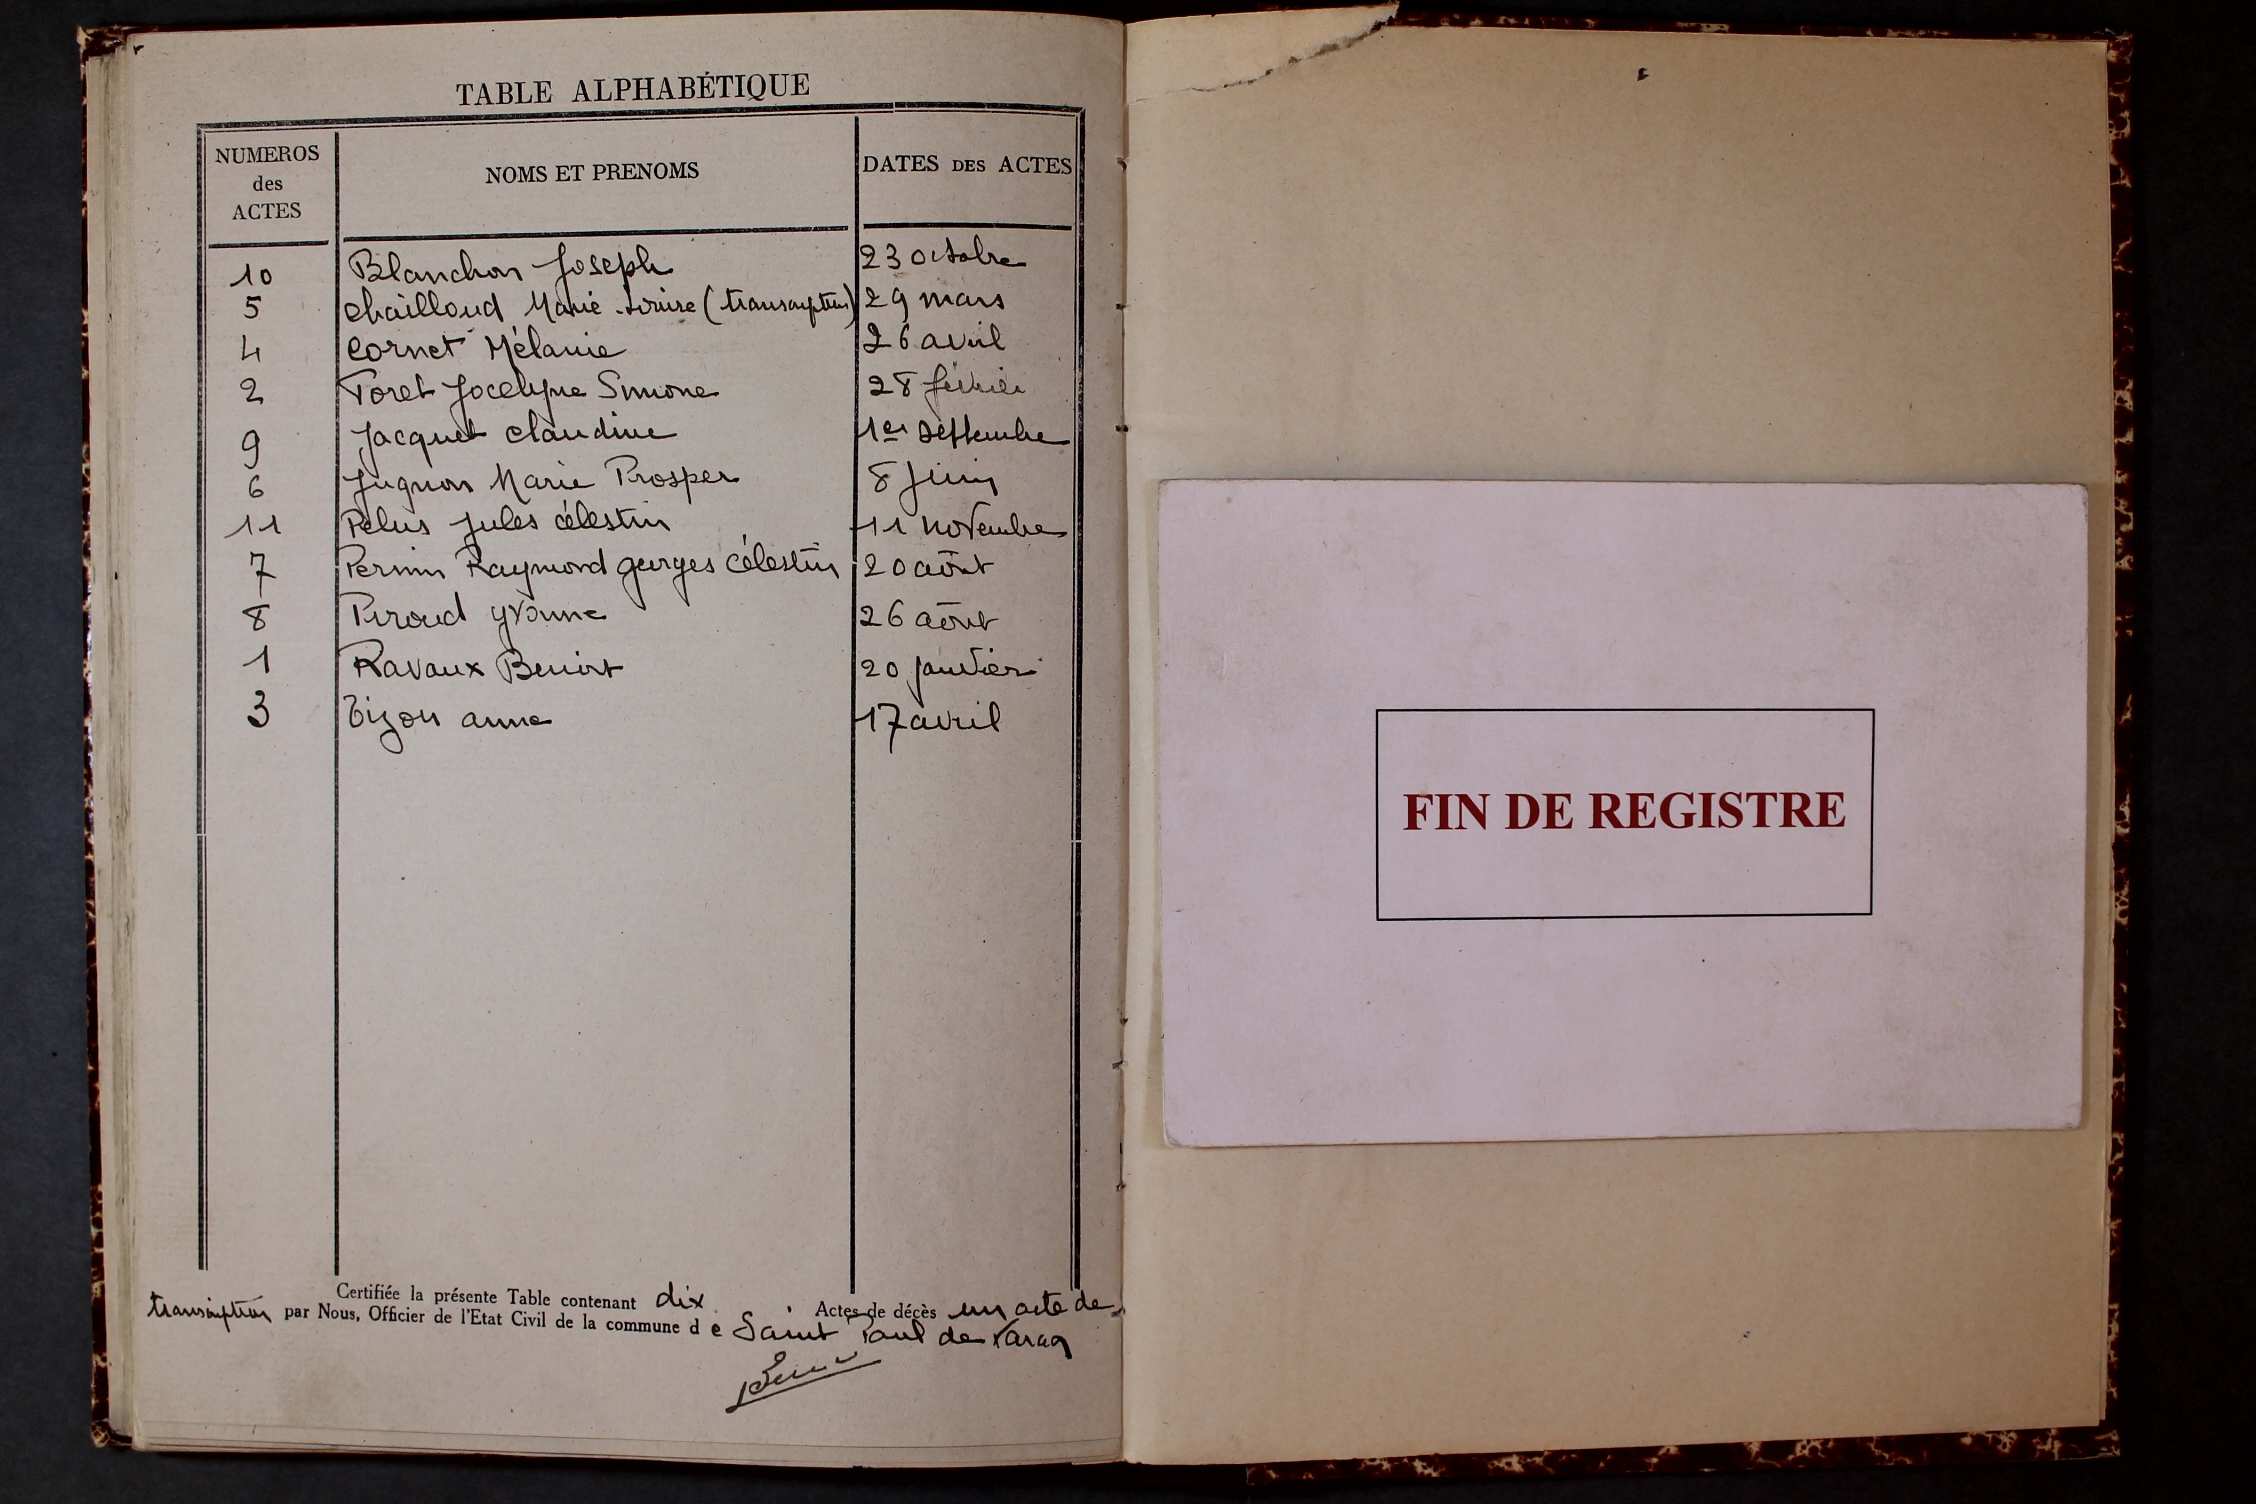 TABLE ALPHABÉTIQUE
NUMEROS des ACTES
NOMS ET PRENOMS
DATES DES ACTES
10 Blanchon Joseph 23 octobre
5 Chailloud Marie Louise (transcription) 29 mars
4 Cornet Mélanie 26 avril
2 Foret Jocelyne Simone 28 février
9 Jacquet Claudine 1er septembre
6 Jugnon Marie Prosper 8 juin
11 Pelus Jules Célestin 11 novembre
7 Perrin Raymond georges Célestin 20 août
8 Piroud Yvonne 26 août
1 Ravaux Benoit 20 janvier
3 Tizon anne 17 avril
Certifiée la présente Table contenant dix Actes de décès un acte de
transcription par Nous, Officier de l'Etat Civil de la commune d e Saint Paul de Varax
FIN DE REGISTRE